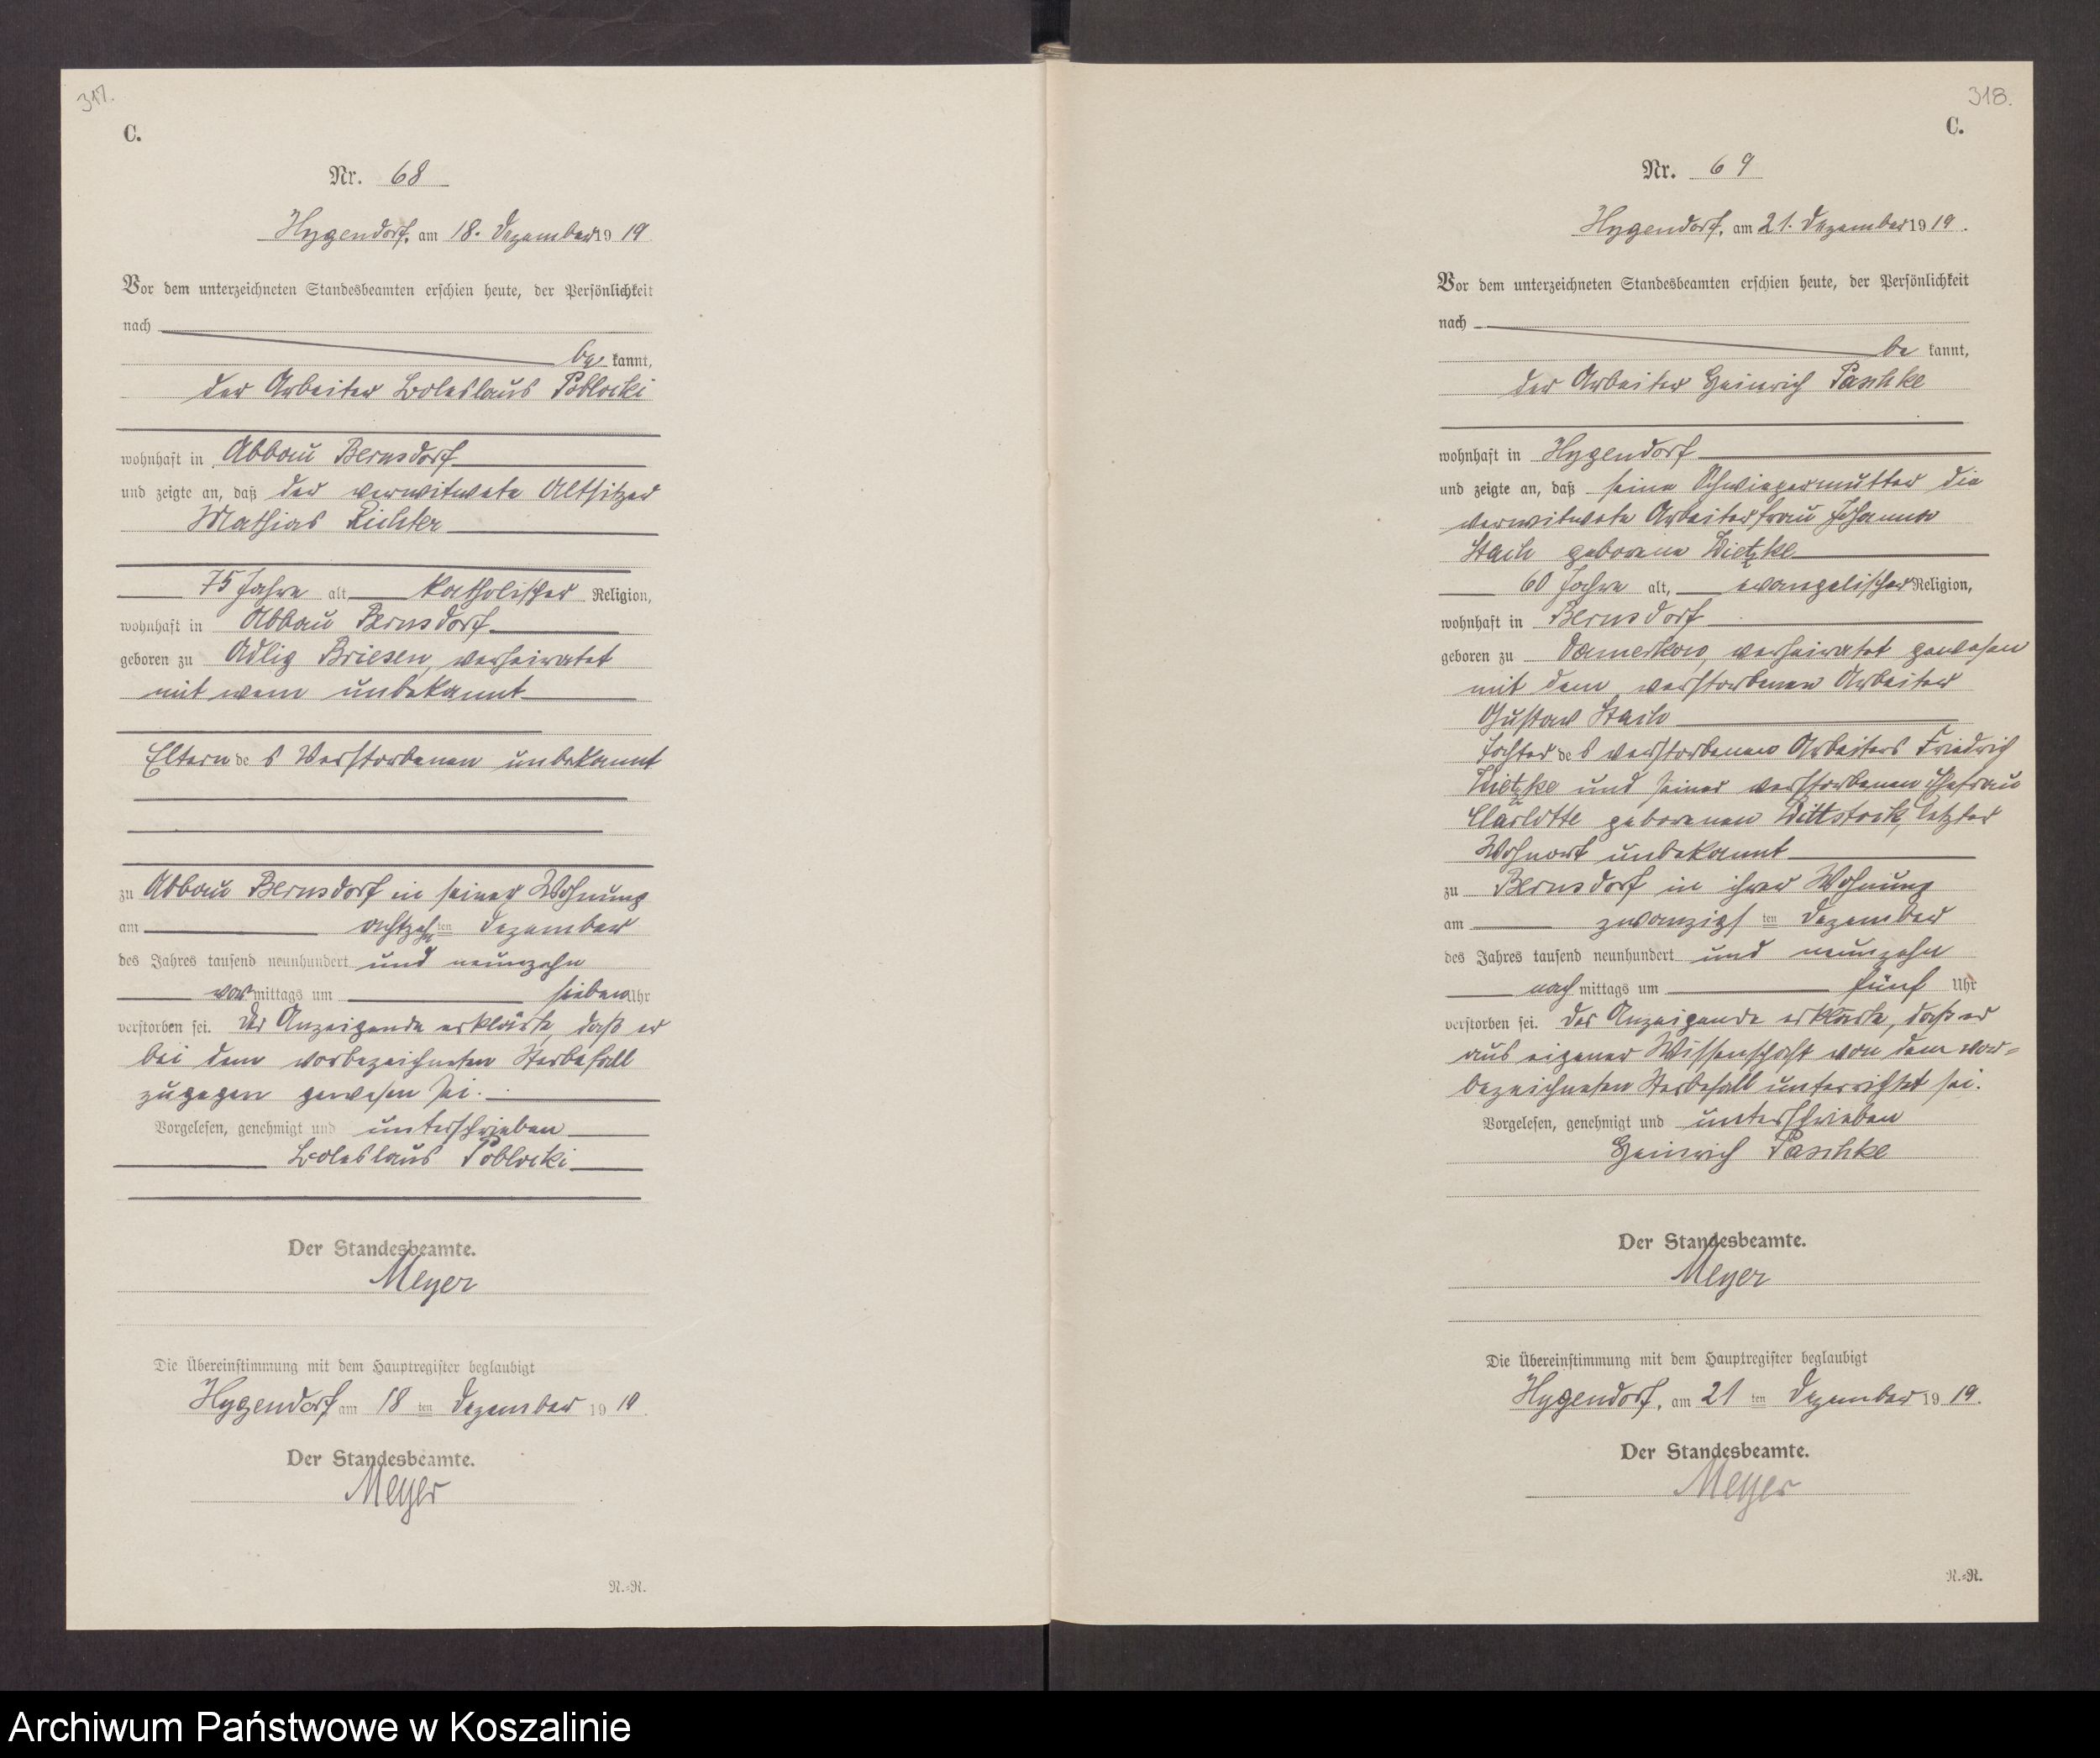 317.
C.
Nr. 68
Hygendorf, am 18. Dezember 1919
Vor dem unterzeichneten Standesbeamten erschien heute, der Persönlichkeit
nach
be kannt,
der Arbeiter Boleslaus Poblocki
wohnhaft in Abbau Bernsdorf
und zeigte an, daß der verwitwete Altsitzer
Mathias Richter
75 Jahre alt, katholischer Religion,
wohnhaft in Abbau Bernsdorf
geboren zu Adlig Briesen, verheiratet
mit wem unbekannt
Eltern des Verstorbenen unbekannt
zu Abbau Bernsdorf in seiner Wohnung
am achtzehnten Dezember
des Jahres tausend neunhundert und neunzehn
vormittags um sieben Uhr
verstorben sei. Der Anzeigende erklärte, daß er
bei dem vorbezeichneten Sterbefall
zugegen gewesen sei.
Vorgelesen, genehmigt und unterschrieben
Boleslaus Poblocki
Der Standesbeamte.
Meyer
Die Übereinstimmung mit dem Hauptregister beglaubigt
Hygendorf am 18ten Dezember 1919.
Der Standesbeamte.
Meyer
N.=N.
318.
C.
Nr. 69
Hygendorf, am 21. Dezember 1919.
Vor dem unterzeichneten Standesbeamten erschien heute, der Persönlichkeit
nach
be kannt,
der Arbeiter Heinrich Paschke
wohnhaft in Hygendorf
und zeigte an, daß seine Schwiegermutter die
verwitwete Arbeiterfrau Johanna
Stach geborene Dietzke
60 Jahre alt, evangelischer Religion,
wohnhaft in Bernsdorf
geboren zu Damerkow, verheiratet gewesen
mit dem verstorbenen Arbeiter
Gustav Stach
Tochter des verstorbenen Arbeiters Friedrich
Dietzke und seiner verstorbenen Ehefrau
Charlotte geborenen Wittstock, letzter
Wohnort unbekannt
zu Bernsdorf in ihrer Wohnung
am zwanzigsten Dezember
des Jahres tausend neunhundert und neunzehn
nachmittags um fünf Uhr
verstorben sei. Der Anzeigende erklärte, daß er
aus eigener Wissenschaft von dem vor=
bezeichneten Sterbefall unterrichtet sei.
Vorgelesen, genehmigt und unterschrieben
Heinrich Paschke
Der Standesbeamte.
Meyer
Die Übereinstimmung mit dem Hauptregister beglaubigt
Hygendorf, am 21ten Dezember 1919.
Der Standesbeamte.
Meyer
N.=N.
Archiwum Państwowe w Koszalinie